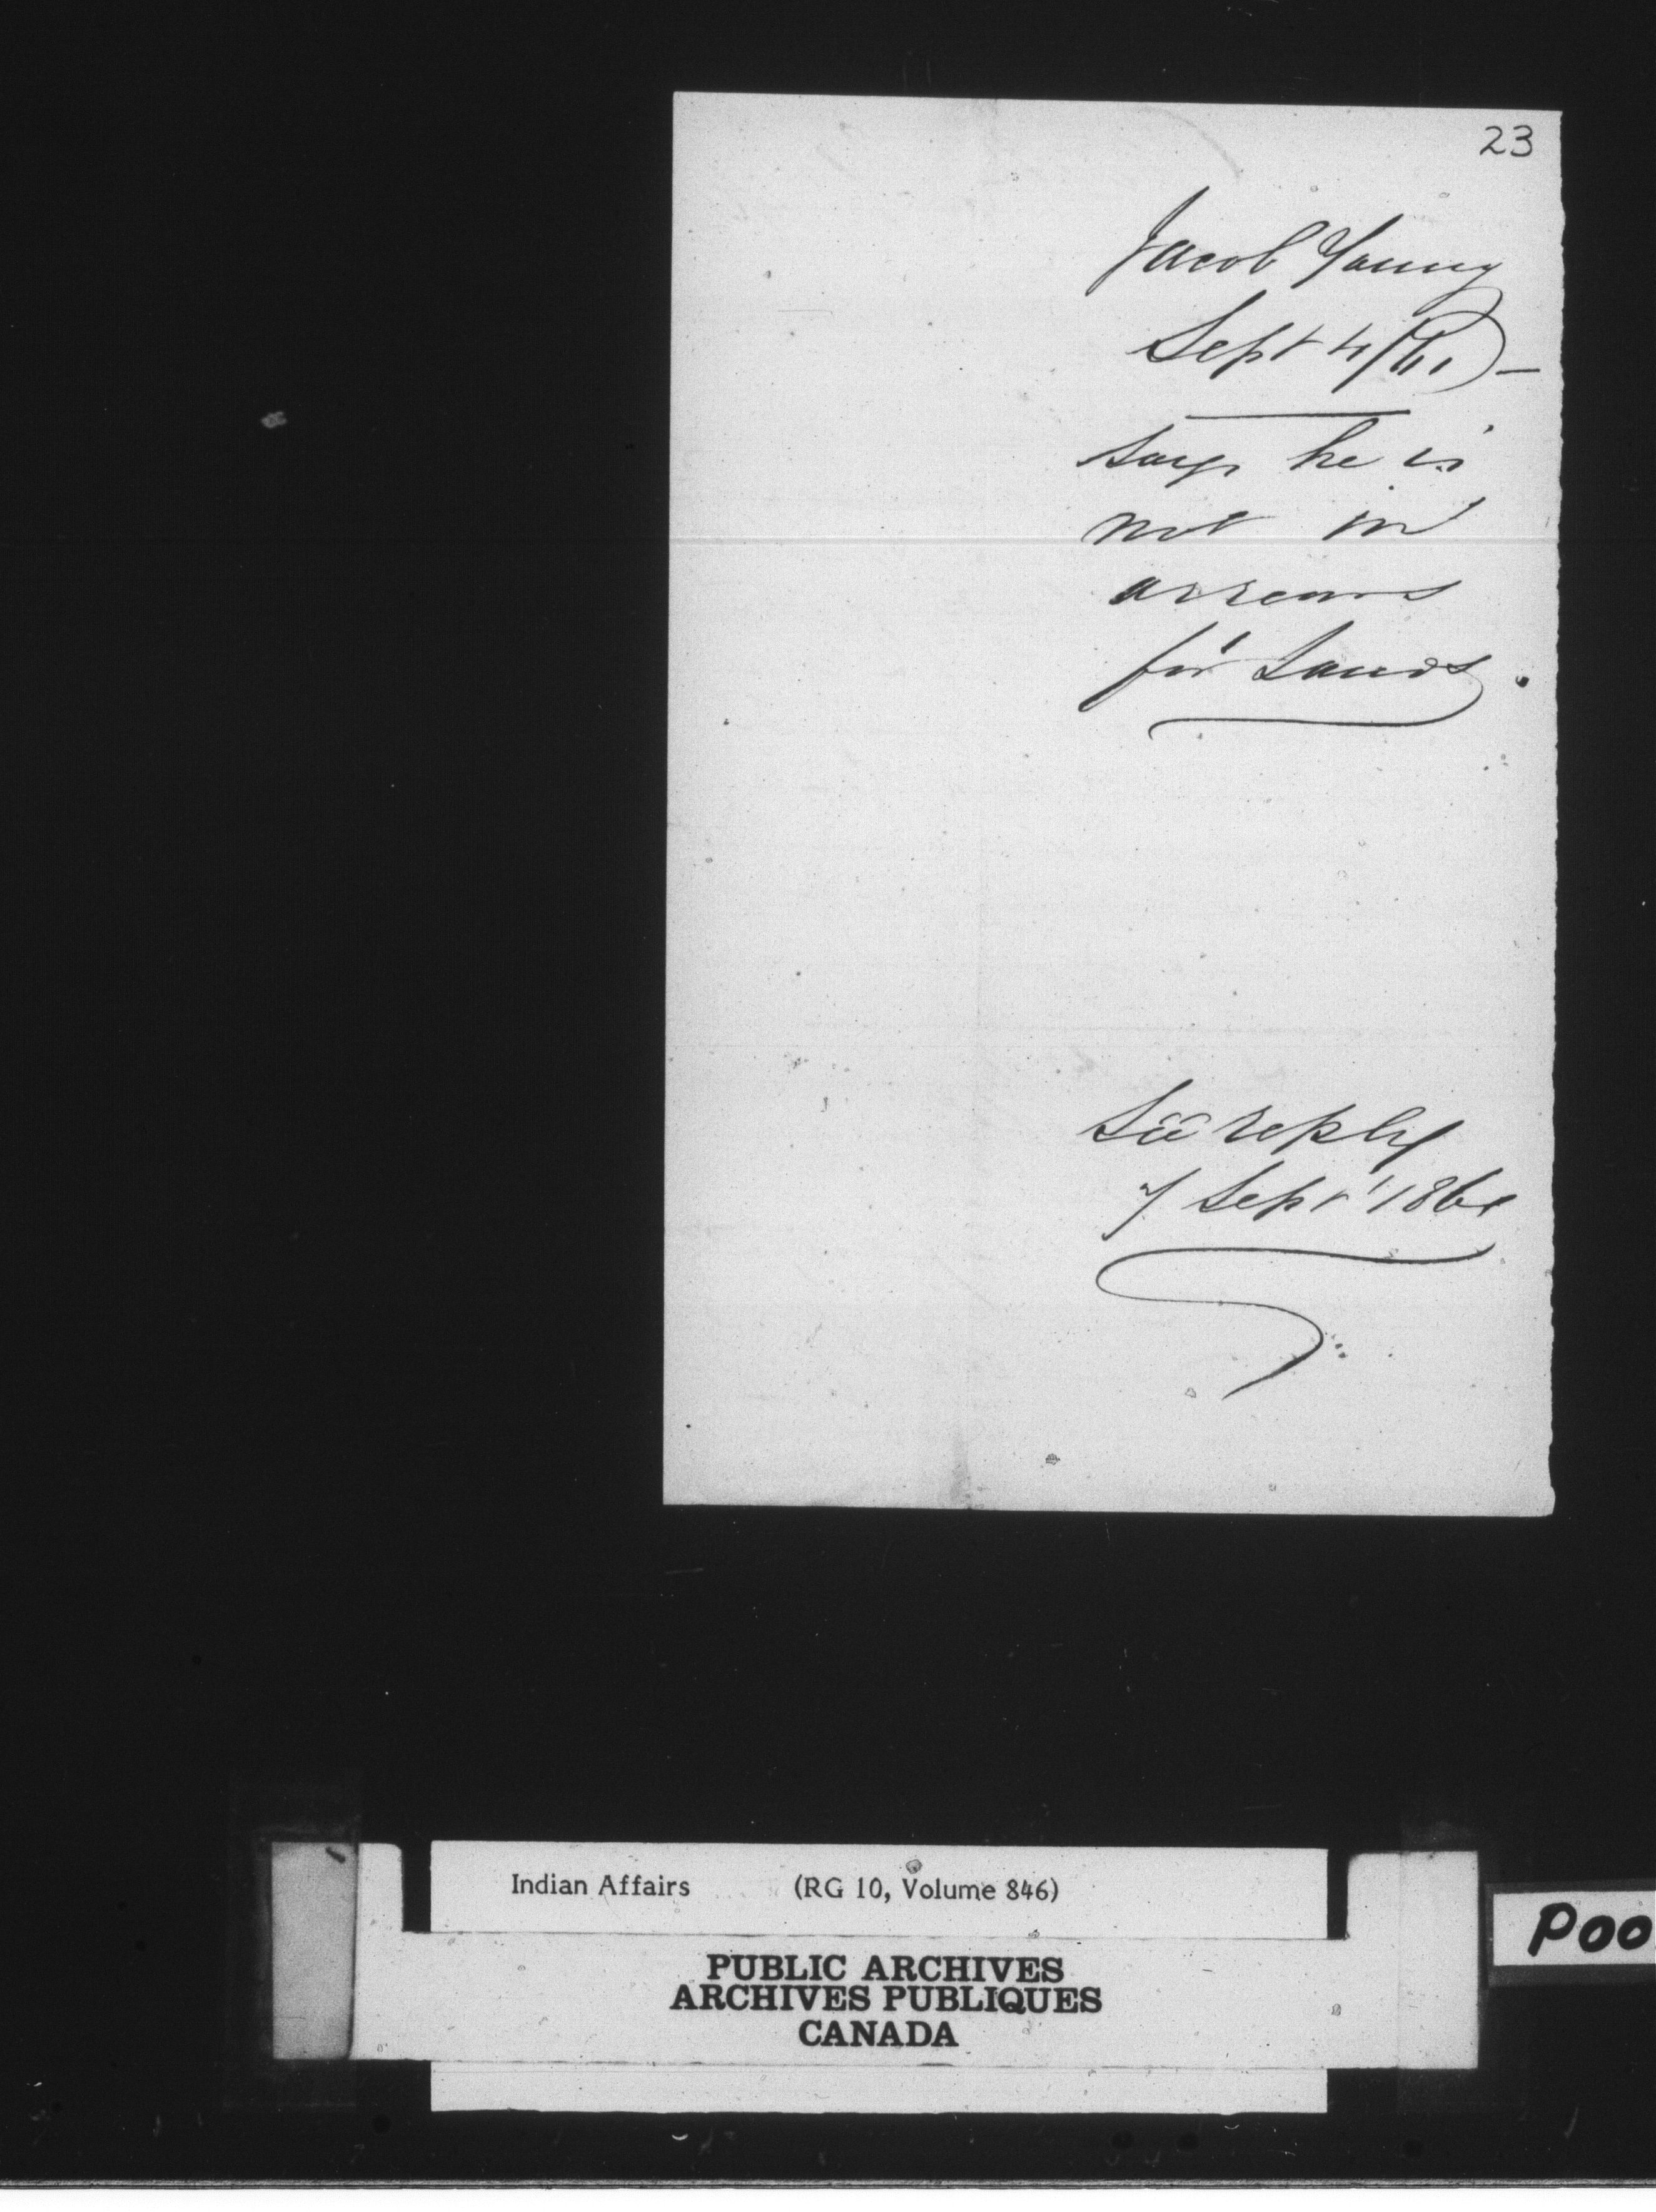 23
Jacob Young
Sept 4/61 —
says he is
not in
arrears
for Lands.
See reply
7 Sept 1861
Indian Affairs (RG 10, Volume 846)
PUBLIC ARCHIVES
ARCHIVES PUBLIQUES
CANADA
POO